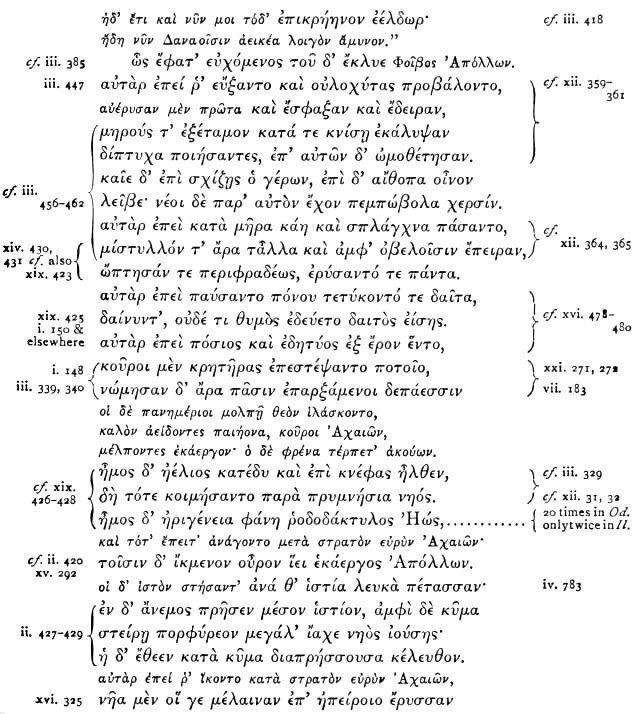 ἠδ' ἔτι καὶ νῦν μοι τόδ' ἐπικρήηνον ἐέλδωρ· cf. iii. 418
ἤδη νῦν Δαναοῖσιν ἀεικέα λοιγὸν ἄμυνον."
cf. iii. 385 ὣς ἔφατ' εὐχόμενος τοῦ δ' ἔκλυε Φοῖβος Ἀπόλλων.
iii. 447 αὐτὰρ ἐπεί ῥ' εὔξαντο καὶ οὐλοχύτας προβάλοντο, cf. xii. 359–
αὐέρυσαν μὲν πρῶτα καὶ ἔσφαξαν καὶ ἔδειραν, 361
μηρούς τ' ἐξέταμον κατά τε κνίσῃ ἐκάλυψαν
δίπτυχα ποιήσαντες, ἐπ' αὐτῶν δ' ὠμοθέτησαν.
cf. iii. καῖε δ' ἐπὶ σχίζῃς ὁ γέρων, ἐπὶ δ' αἴθοπα οἶνον
456–462 λεῖβε· νέοι δὲ παρ' αὐτὸν ἔχον πεμπώβολα χερσίν.
αὐτὰρ ἐπεὶ κατὰ μῆρα κάη καὶ σπλάγχνα πάσαντο, cf.
xiv. 430, μίστυλλόν τ' ἄρα τἆλλα καὶ ἀμφ' ὀβελοῖσιν ἔπειραν, xii. 364, 365
431 cf. also
xix. 423 ὤπτησάν τε περιφραδέως, ἐρύσαντό τε πάντα.
αὐτὰρ ἐπεὶ παύσαντο πόνου τετύκοντό τε δαῖτα,
xix. 425 δαίνυντ', οὐδέ τι θυμὸς ἐδεύετο δαιτὸς ἐΐσης. cf. xvi. 478–
i. 150 & 480
elsewhere αὐτὰρ ἐπεὶ πόσιος καὶ ἐδητύος ἐξ ἔρον ἕντο,
i. 148 κοῦροι μὲν κρητῆρας ἐπεστέψαντο ποτοῖο, xxi. 271, 272
iii. 339, 340 νώμησαν δ' ἄρα πᾶσιν ἐπαρξάμενοι δεπάεσσιν vii. 183
οἱ δὲ πανημέριοι μολπῇ θεὸν ἱλάσκοντο,
καλὸν ἀείδοντες παιήονα, κοῦροι Ἀχαιῶν,
μέλποντες ἑκάεργον· ὁ δὲ φρένα τέρπετ' ἀκούων.
cf. xix. ἦμος δ' ἠέλιος κατέδυ καὶ ἐπὶ κνέφας ἦλθεν, cf. iii. 329
426–428 δὴ τότε κοιμήσαντο παρὰ πρυμνήσια νηός. cf. xii. 31, 32
ἦμος δ' ἠριγένεια φάνη ῥοδοδάκτυλος Ἠώς,............ 20 times in Od.
only twice in Il.
καὶ τότ' ἔπειτ' ἀνάγοντο μετὰ στρατὸν εὐρὺν Ἀχαιῶν·
cf. ii. 420 τοῖσιν δ' ἴκμενον οὖρον ἵει ἑκάεργος Ἀπόλλων.
xv. 292
οἱ δ' ἱστὸν στήσαντ' ἀνά θ' ἱστία λευκὰ πέτασσαν· iv. 783
ἐν δ' ἄνεμος πρῆσεν μέσον ἱστίον, ἀμφὶ δὲ κῦμα
ii. 427–429 στείρῃ πορφύρεον μεγάλ' ἴαχε νηὸς ἰούσης·
ἡ δ' ἔθεεν κατὰ κῦμα διαπρήσσουσα κέλευθον.
αὐτὰρ ἐπεί ῥ' ἵκοντο κατὰ στρατὸν εὐρὺν Ἀχαιῶν,
xvi. 325 νῆα μὲν οἵ γε μέλαιναν ἐπ' ἠπείροιο ἔρυσσαν